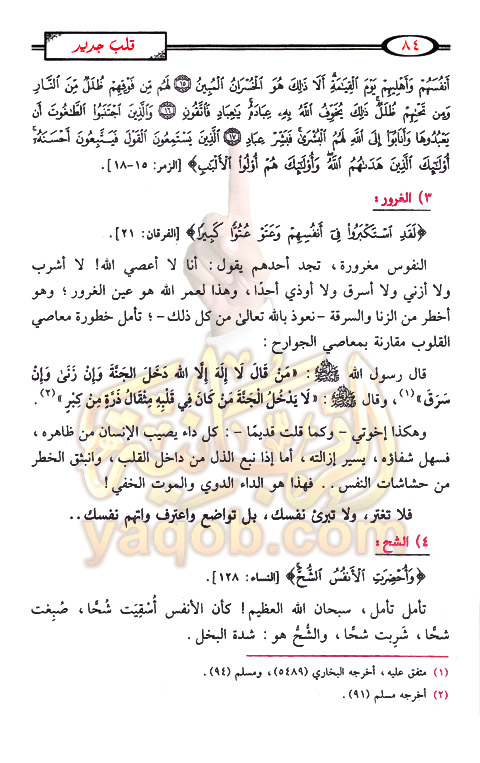 ٨٤
قلب جديد
أَنفُسَهُمْ وَأَهْلِيهِمْ يَوْمَ ٱلْقِيَٰمَةِ أَلَا ذَٰلِكَ هُوَ ٱلْخُسْرَانُ ٱلْمُبِينُ ۝١٥ لَهُم مِّن فَوْقِهِمْ ظُلَلٌ مِّنَ ٱلنَّارِ
وَمِن تَحْتِهِمْ ظُلَلٌ ذَٰلِكَ يُخَوِّفُ ٱللَّهُ بِهِۦ عِبَادَهُۥ يَٰعِبَادِ فَٱتَّقُونِ ۝١٦ وَٱلَّذِينَ ٱجْتَنَبُوا۟ ٱلطَّٰغُوتَ أَن
يَعْبُدُوهَا وَأَنَابُوٓا۟ إِلَى ٱللَّهِ لَهُمُ ٱلْبُشْرَىٰ فَبَشِّرْ عِبَادِ ۝١٧ ٱلَّذِينَ يَسْتَمِعُونَ ٱلْقَوْلَ فَيَتَّبِعُونَ أَحْسَنَهُۥٓ
أُو۟لَٰٓئِكَ ٱلَّذِينَ هَدَىٰهُمُ ٱللَّهُ وَأُو۟لَٰٓئِكَ هُمْ أُو۟لُوا۟ ٱلْأَلْبَٰبِ﴾ [الزمر: ١٥-١٨].
٣) الغرور:
﴿لَقَدِ ٱسْتَكْبَرُوا۟ فِىٓ أَنفُسِهِمْ وَعَتَوْ عُتُوًّا كَبِيرًا﴾ [الفرقان: ٢١].
النفوس مغرورة، تجد أحدهم يقول: أنا لا أعصي الله! لا أشرب
ولا أزني ولا أسرق ولا أوذي أحدًا، وهذا لعمر الله هو عين الغرور؛ وهو
أخطر من الزنا والسرقة -نعوذ بالله تعالىٰ من كل ذلك-؛ تأمل خطورة معاصي
القلوب مقارنة بمعاصي الجوارح:
قال رسول الله ﷺ: «مَنْ قَالَ لَا إِلَهَ إِلَّا الله دَخَلَ الجَنَّةَ وَإِنْ زَنَىٰ وَإِنْ
سَرَقَ»(١)، وقال ﷺ: «لَا يَدْخُلُ الجَنَّةَ مَنْ كَانَ فِي قَلْبِهِ مِثْقَالُ ذَرَّةٍ مِنْ كِبْرٍ»(٢).
وهكذا إخوتي - وكما قلت قديمًا -: كل داء يصيب الإنسان من ظاهره،
فسهل شفاؤه، يسير إزالته، أما إذا نبع الذل من داخل القلب، وانبثق الخطر
من حشاشات النفس.. فهذا هو الداء الدوي والموت الخفي!
فلا تغتر، ولا تبرئ نفسك، بل تواضع واعترف واتهم نفسك..
٤) الشح:
﴿وَأُحْضِرَتِ ٱلْأَنفُسُ ٱلشُّحَّ﴾ [النساء: ١٢٨].
تأمل تأمل، سبحان الله العظيم! كأن الأنفس أُسْقِيَت شُحًّا، صُبِغَت
شحًّا، شَرِبت شحًّا، والشُّحُّ هو: شدة البخل.
(١) متفق عليه، أخرجه البخاري (٥٤٨٩)، ومسلم (٩٤).
(٢) أخرجه مسلم (٩١).
yaqob.com